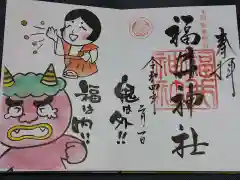 奉拝
福井神社
令和四年
二月一日
鬼は外!!
福は内!!